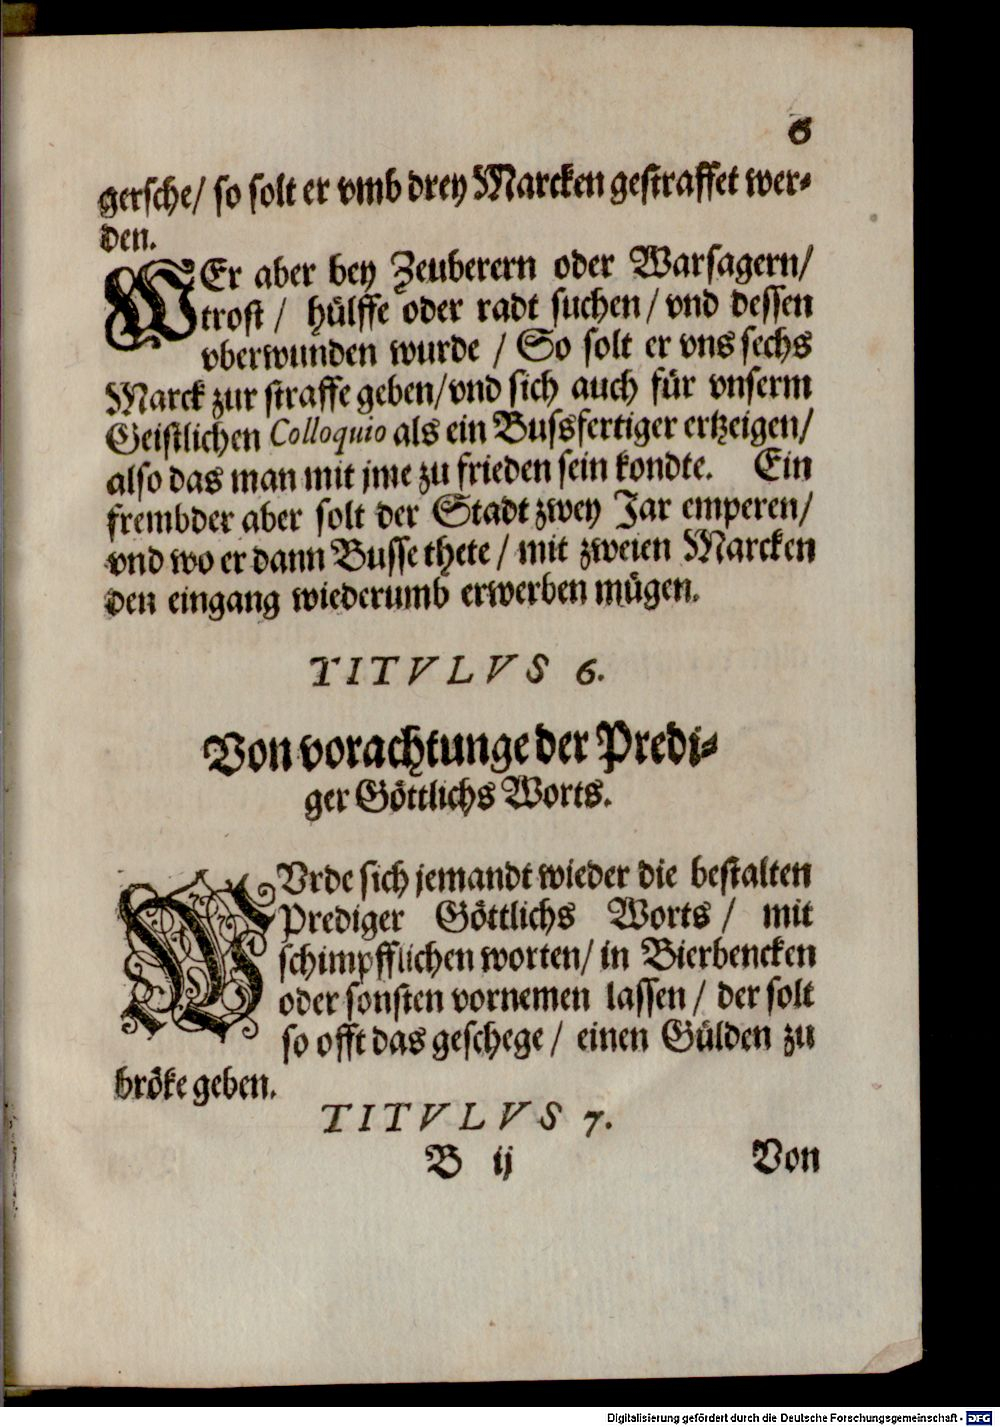 6
gersche/ so solt er vmb drey Marcken gestraffet wer-
den.
WEr aber bey Zeuberern oder Warsagern/
trost / hülffe oder radt suchen / vnd dessen
vberwunden wurde / So solt er vns sechs
Marck zur straffe geben/vnd sich auch für vnserm
Geistlichen Colloquio als ein Bussfertiger ertzeigen/
also das man mit jme zu frieden sein kondte. Ein
frembder aber solt der Stadt zwey Jar emperen/
vnd wo er dann Busse thete / mit zweien Marcken
den eingang wiederumb erwerben mügen.
TITVLVS 6.
Von vorachtunge der Predi-
ger Göttlichs Worts.
WVrde sich jemandt wieder die bestalten
Prediger Göttlichs Worts / mit
schimpfflichen worten/ in Bierbencken
oder sonsten vornemen lassen / der solt
so offt das geschege / einen Gülden zu
bröke geben.
TITVLVS 7.
B ij Von
Digitalisierung gefördert durch die Deutsche Forschungsgemeinschaft - DFG